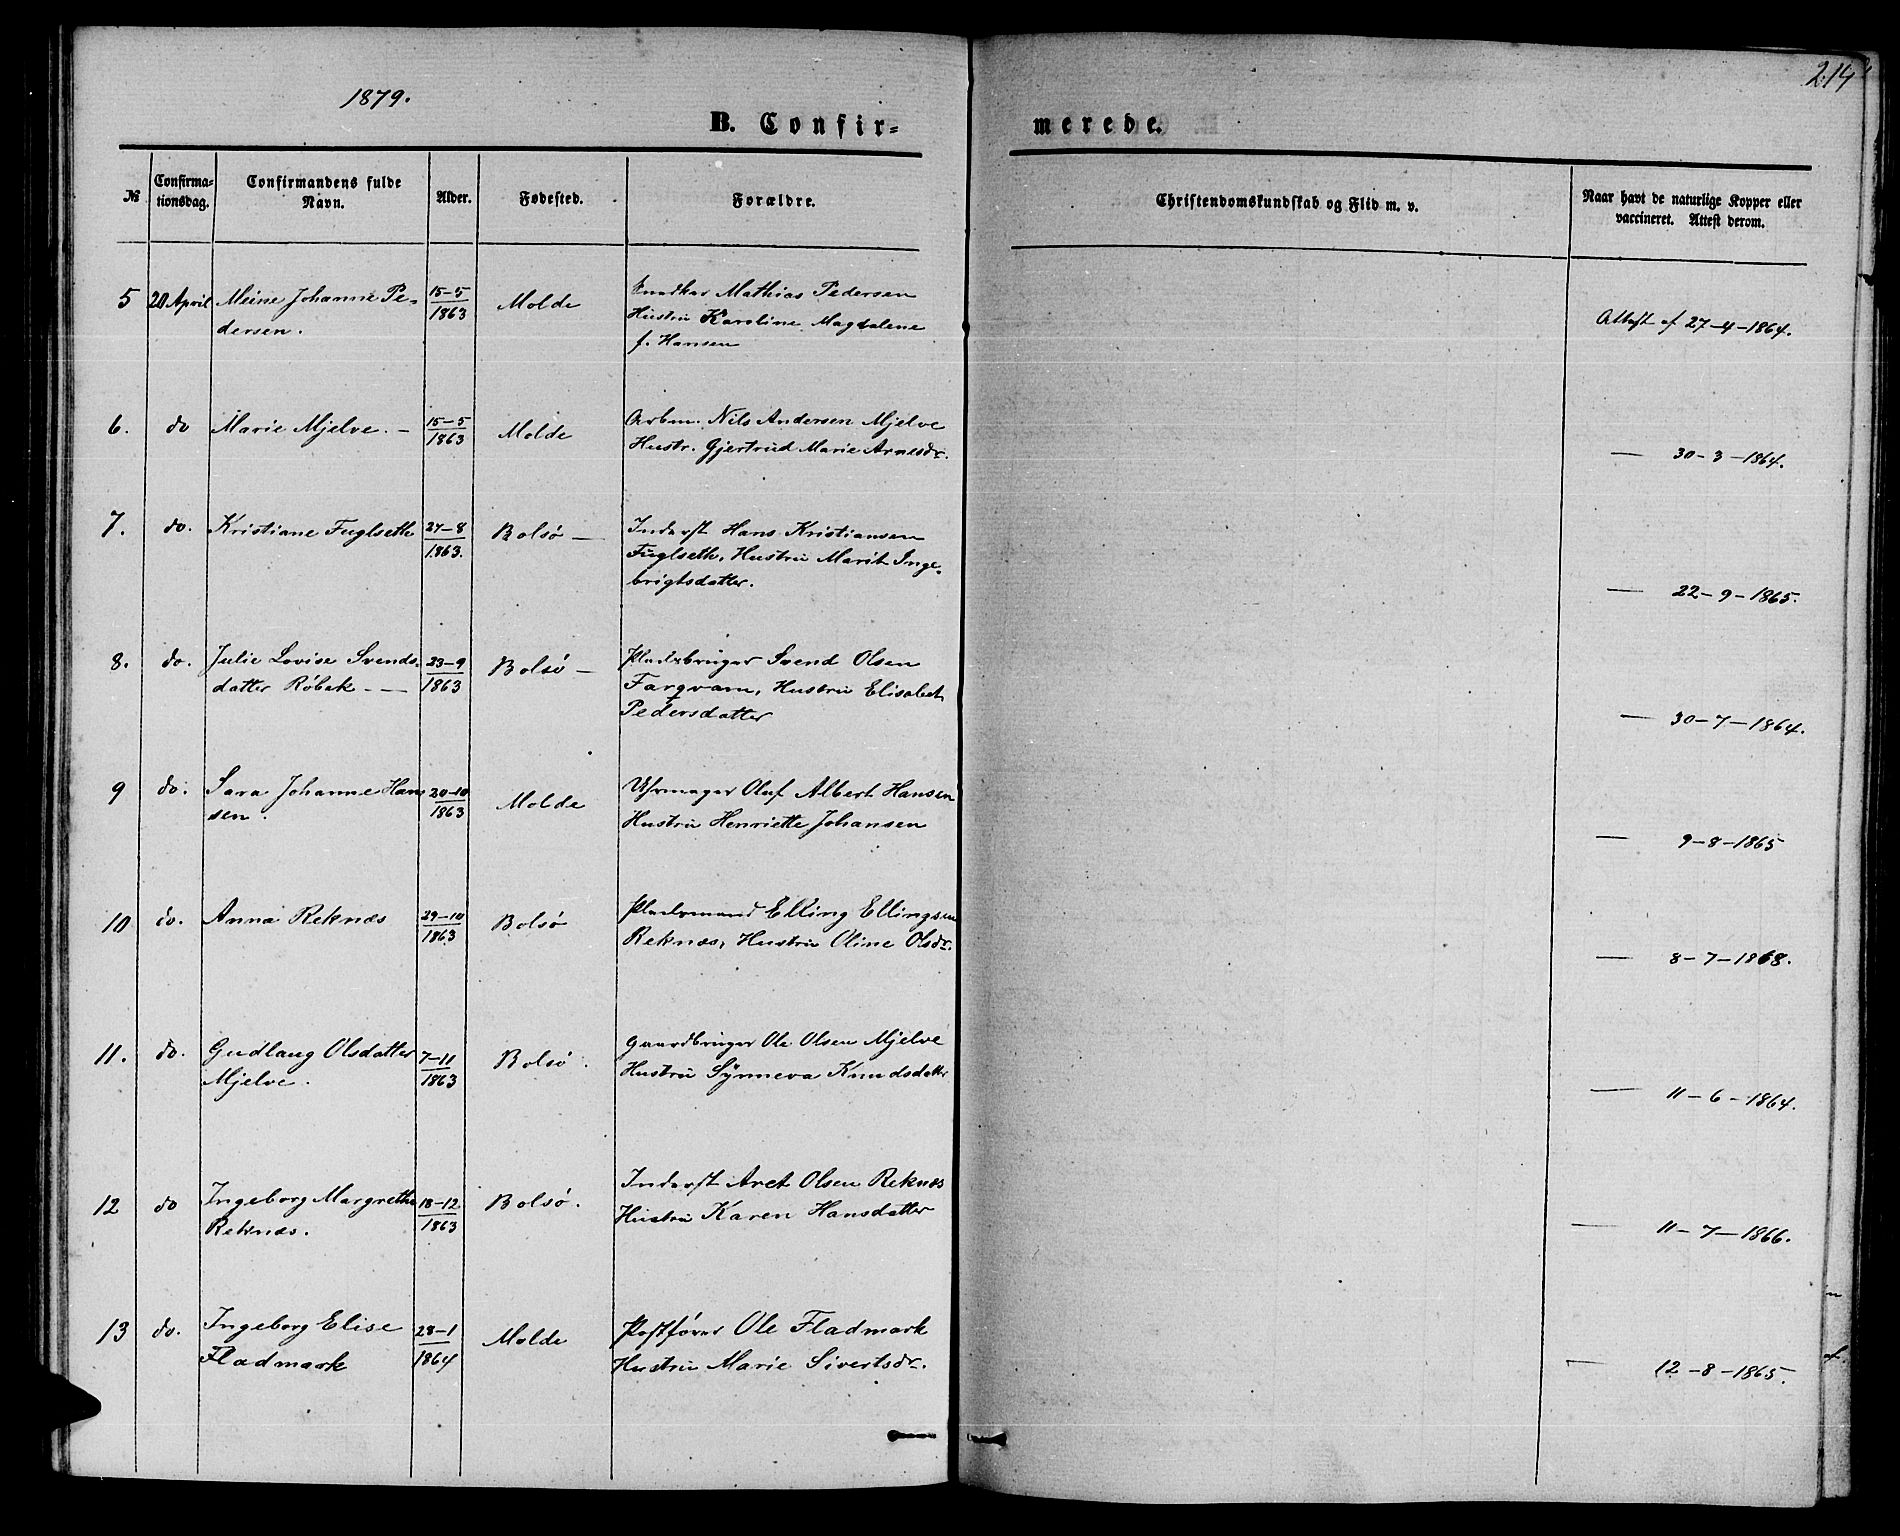 1879.
214
B. Confir=
merede.
№
Confirma=
tionsdag.
Confirmandens fulde
Navn.
Alder.
Fødested.
Forældre.
Christendomskundskab og Flid m. v.
Naar havt de naturlige Kopper eller
vaccineret. Attest derom.
5 20 April Meine Johanne Pe- 15-5 Molde Snedker Mathias Pedersen
dersen. 1863 Hustru Karoline Magdalene
f. Hansen
Attest af 27-4-1864.
6. do Marie Mjelve. — 15-5 Molde Arbm. Nils Andersen Mjelve
1863 Hustr. Gjertrud Marie Arnesdr.
— 30-3-1864.
7. do. Kristiane Fuglseth 27-8 Bolsø — Inderst Hans Kristiansen
1863. Fuglseth, Hustru Marit Inge-
brigtsdatter.
— 22-9-1865.
8. do. Julie Lovise Svends- 23-9 Bolsø — Pladsbruger Svend Olsen
datter Røbek — — 1863 Farqvam, Hustru Elisabet
Pedersdatter
— 30-7-1864.
9 do. Sara Johanne Han 20-10 Molde Uhrmager Oluf Albert Hansen
sen. 1863 Hustru Henriette Johansen
— 9-8-1865
10 do. Anna Reknæs 29-10 Bolsø Pladsmand Elling Ellingsen
1863 Reknæs, Hustru Oline Olsdr.
— 8-7-1868.
11. do. Gudlaug Olsdatter 7-11 Bolsø. Gaardbruger Ole Olsen Mjelve
Mjelve. 1863 Hustru Synneva Knudsdatter
— 11-6-1864.
12 do Ingeborg Margrethe 18-12 Bolsø. Inderst Aret Olsen Reknæs
Reknæs. 1863 Hustru Karen Hansdatter
— 11-7-1866.
13 do. Ingeborg Elise 28-1 Molde Postfører Ole Fladmark
Fladmark 1864 Hustru Marie Sivertsdr.
— 12-8-1865.